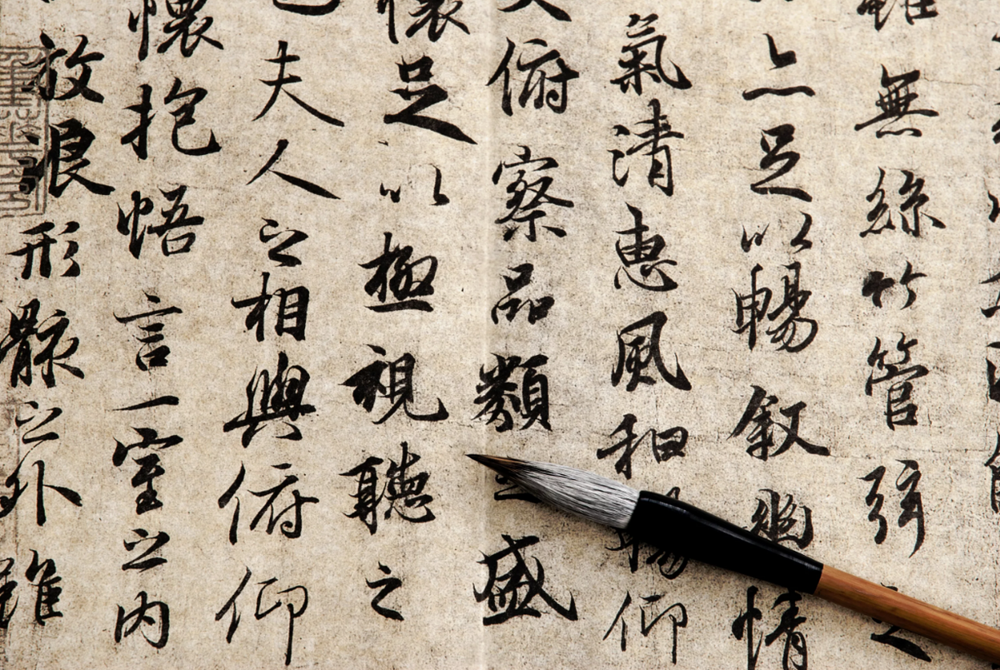 雖無絲竹管弦之
亦足以暢叙幽情
氣清惠風和暢仰
大俯察品類之盛
懷足以極視聽之
也夫人之相與俯仰
懷抱悟言一室之內
放浪形骸之外雖